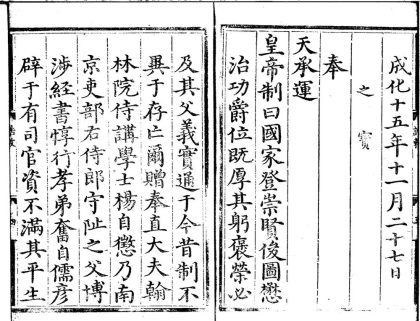 成化十五年十一月二十七日
之寳
奉
天承運
皇帝制曰國家登崇賢俊圖懋
治功爵位既厚其躬褒榮必
及其父義實通于今昔制不
異于存亡爾贈奉直大夫翰
林院侍講學士楊自懲乃南
京吏部右侍郎守阯之父博
涉經書惇行孝弟奮自儒彦
辟于有司官資不滿其平生